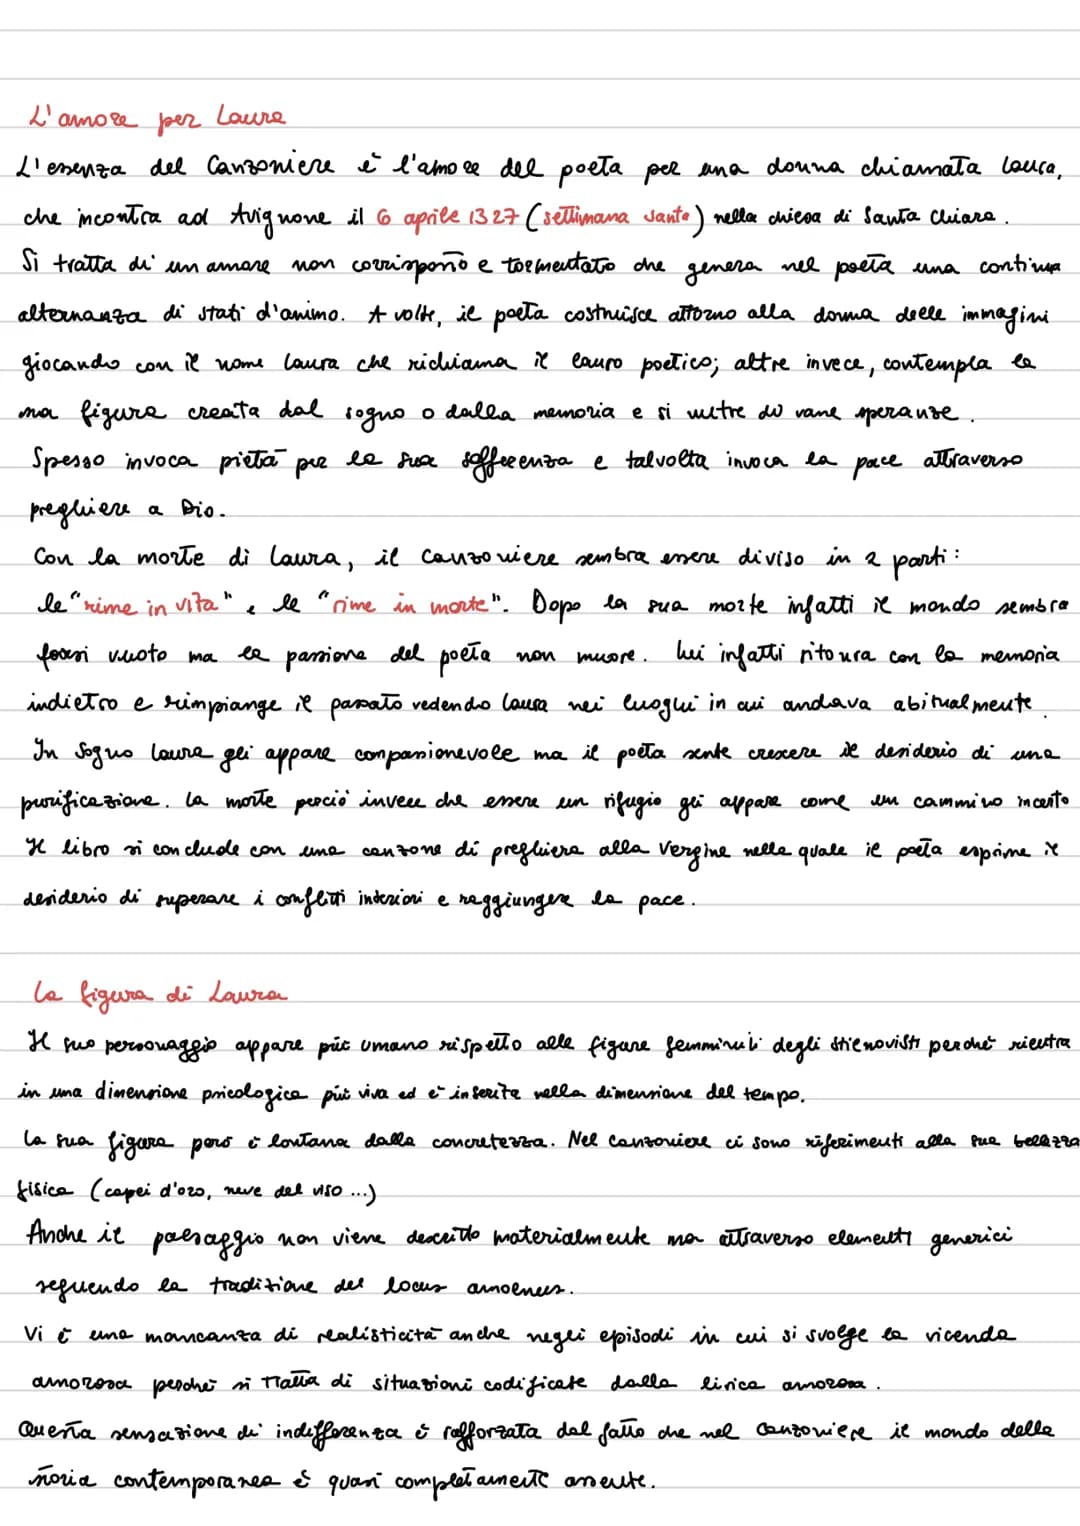 L'amore per Laura
L'essenza del Canzoniere è l'amore del poeta per una donna chiamata Laura,
che incontra ad Avignone il 6 aprile 1327 (settimana santa) nella chiesa di Santa Chiara.
Si tratta di un amore non corrisposto e tormentato che genera nel poeta una continua
alternanza di stati d'animo. A volte, il poeta costruisce attorno alla donna delle immagini
giocando con il nome Laura che richiama il lauro poetico; altre invece, contempla la
sua figura creata dal sogno o dalla memoria e si nutre di vane speranze.
Spesso invoca pietà per la sua sofferenza e talvolta invoca la pace attraverso
preghiere a Dio.
Con la morte di Laura, il canzoniere sembra essere diviso in 2 parti:
le "rime in vita" e le "rime in morte". Dopo la sua morte infatti il mondo sembra
farsi vuoto ma la passione del poeta non muore. Lui infatti ritorna con la memoria
indietro e rimpiange il passato vedendo Laura nei luoghi in cui andava abitualmente.
In sogno Laura gli appare compassionevole ma il poeta sente crescere il desiderio di una
purificazione. La morte perciò invece che essere un rifugio gli appare come un cammino incerto
Il libro si conclude con una canzone di preghiera alla Vergine nella quale il poeta esprime il
desiderio di superare i conflitti interiori e raggiungere la pace.
La figura di Laura
Il suo personaggio appare più umano rispetto alle figure femminili degli stilnovisti perché rientra
in una dimensione psicologica più viva ed è inserita nella dimensione del tempo.
La sua figura però è lontana dalla concretezza. Nel Canzoniere ci sono riferimenti alla sua bellezza
fisica (capei d'oro, neve del viso ...)
Anche il paesaggio non viene descritto materialmente ma attraverso elementi generici
seguendo la tradizione del locus amoenus.
Vi è una mancanza di realisticità anche negli episodi in cui si svolge la vicenda
amorosa perché si tratta di situazioni codificate dalla lirica amorosa.
Questa sensazione di indifferenza è rafforzata dal fatto che nel canzoniere il mondo della
storia contemporanea è quasi completamente assente.